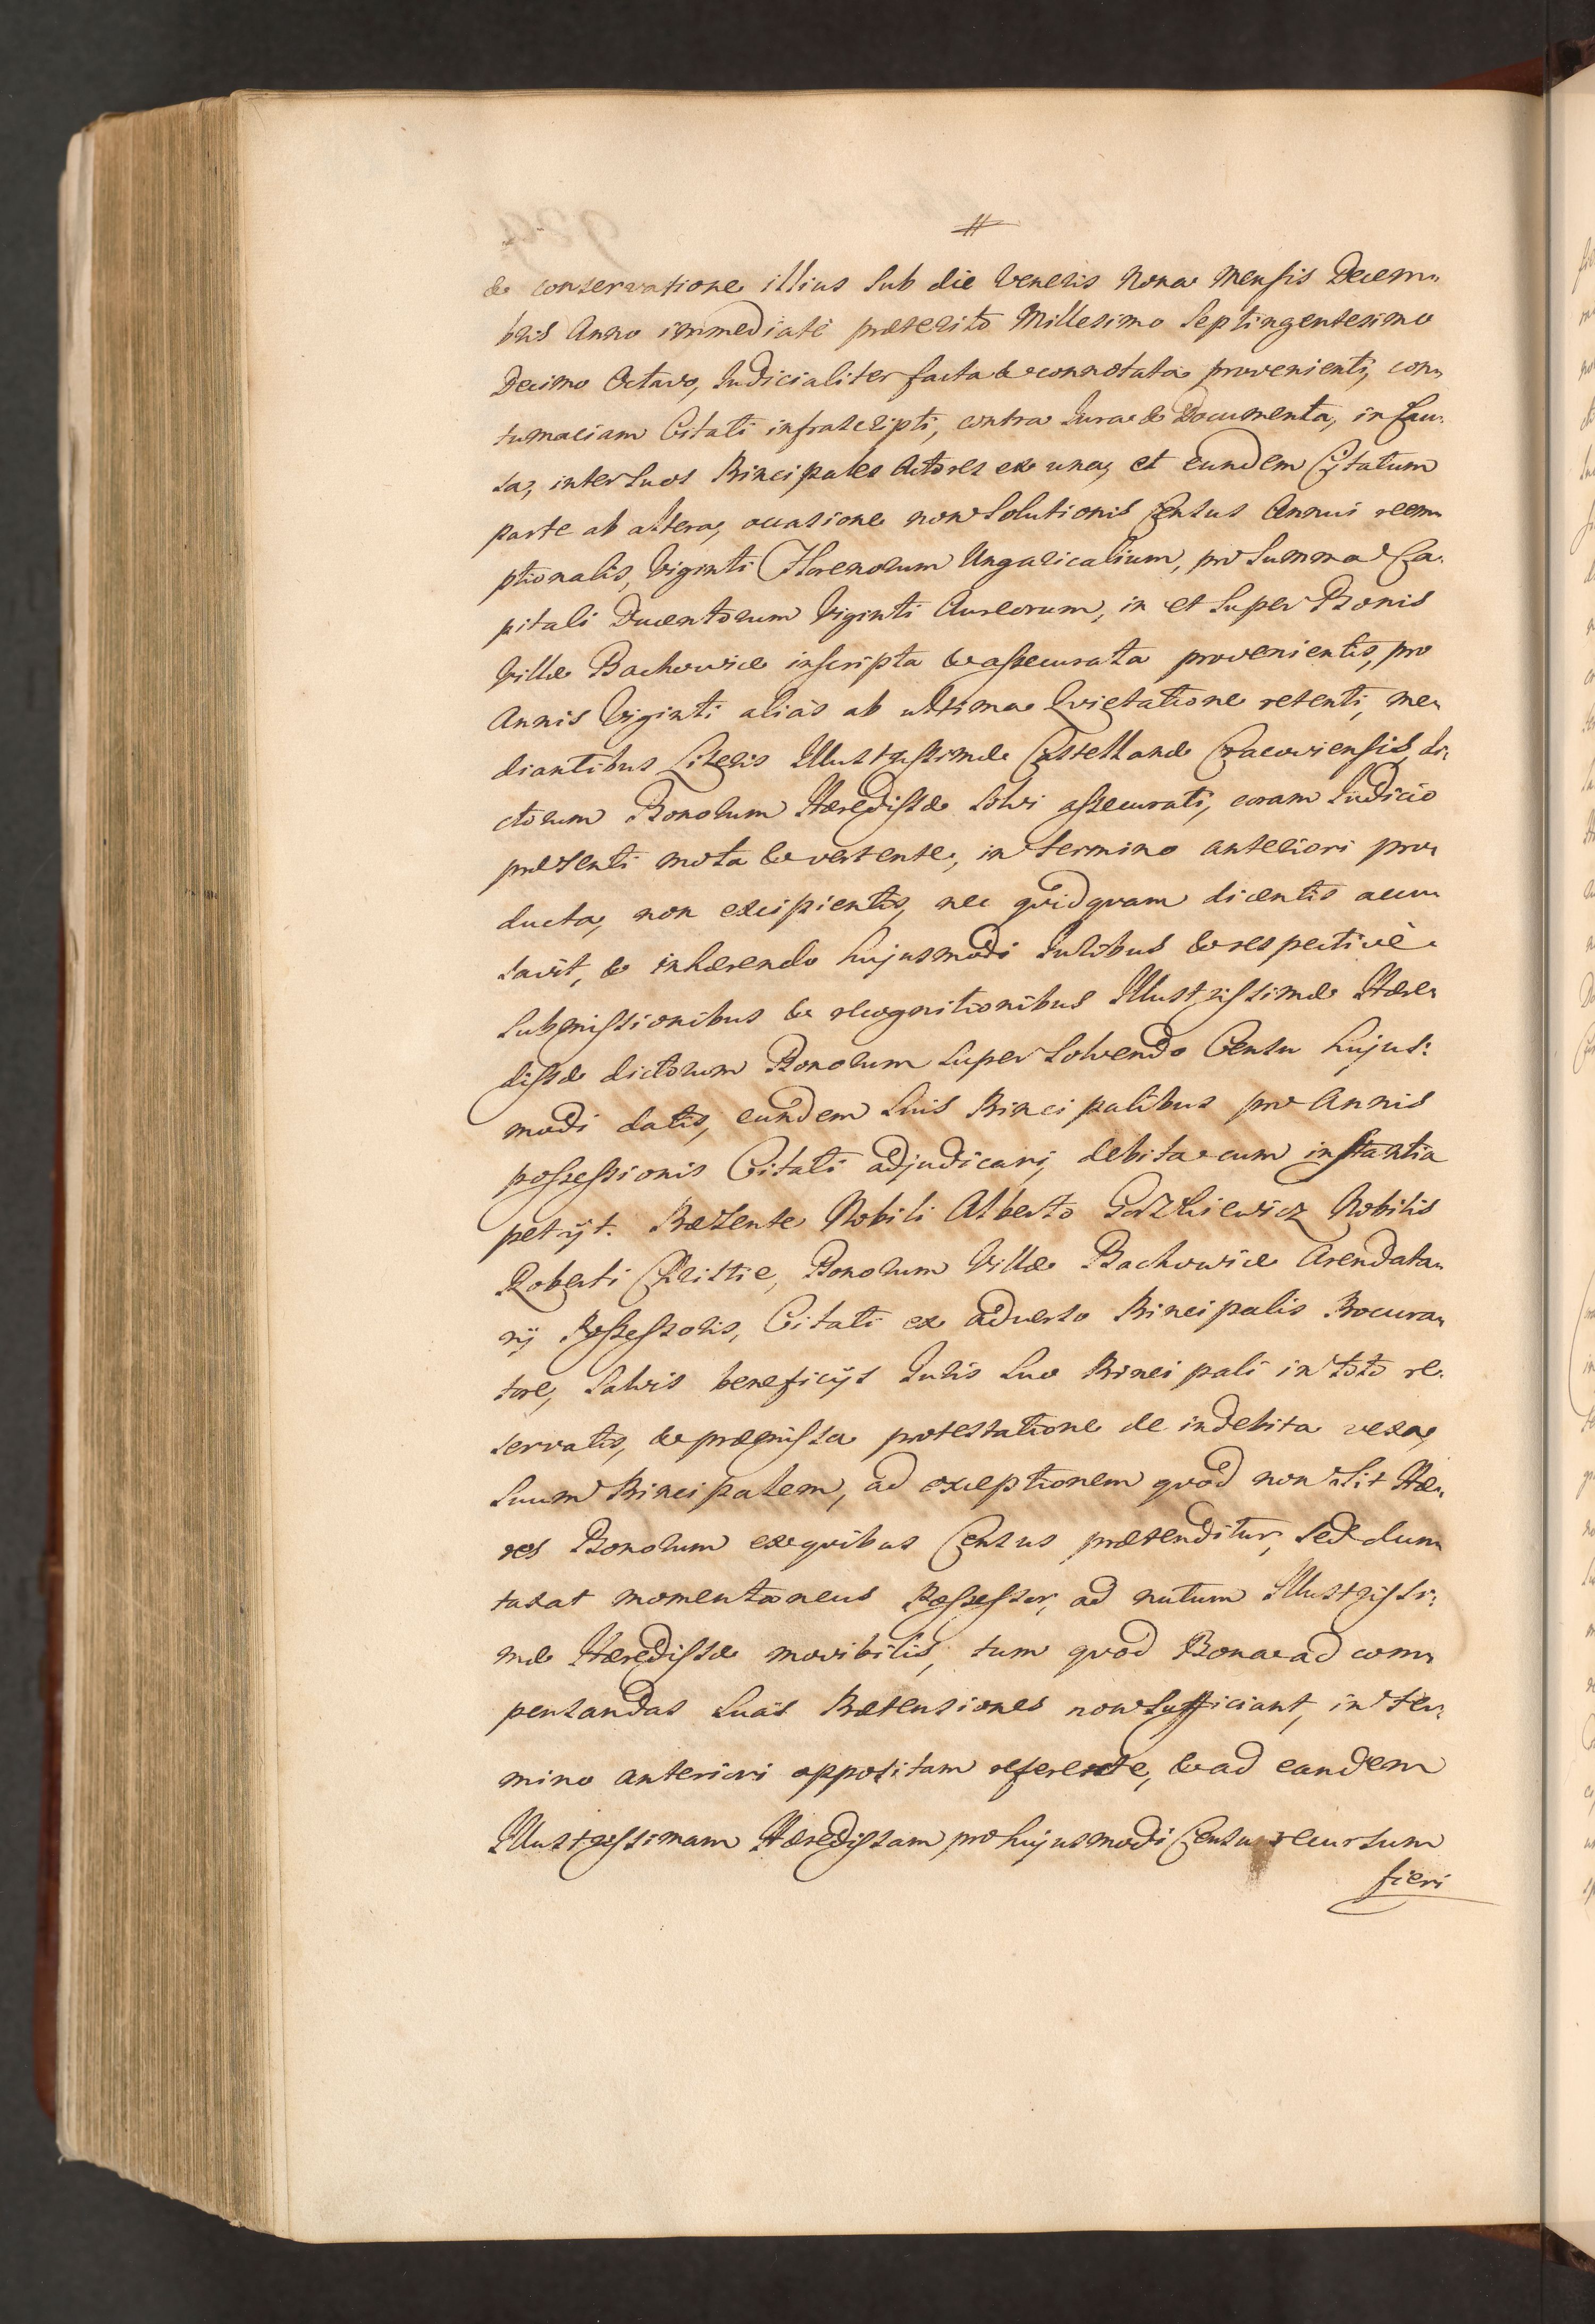 #
& conservatione illius sub die Veneris Nona Mensis Decem„
bris Anno immediatè præterito Millesimo Septingentesimo
Decimo Octavo, Judicialiter facta & connotata provenienti, con„
tumaciam Citati infrascripti, contra Jura & Documenta, in Cau„
sa, inter suos Principales Actores ex una, et eundem Citatum
parte ab altera, occasione non Solutionis Census Annui reem„
ptionalis, Viginti Florenorum Ungaricalium, pro Summa Ca„
pitali Ducentorum Viginti Aureorum, in et super Bonis
Villæ Bachowice inscripta & assecurata provenientis, pro
Annis Viginti aliàs ab ultima Quietatione retenti, me„
diantibus Literis Illustrissimæ Castellanæ Cracoviensis, di„
ctorum Bonorum Hæredissæ solvi assecurati, coram Judicio
præsenti mota & vertente, in termino anteriori pro„
ducta, non excipientis, nec quidquam dicentis accu„
savit, & inhærendo hujusmodi Juribus & respectivè
submissionibus & recognitionibus Illustrissimæ Hære„
dissæ dictorum Bonorum super solvendo Censu hujus„
modi datis, eundem suis Principalibus pro Annis
possessionis Citati adjudicari, debita cum instantia
petijt. Præsente Nobili Alberto Gorzkiewicz Nobilis
Roberti Chlistie, Bonorum Villæ Bachowice Arendata„
rij Possessoris, Citati ex adverso Principalis Procura„
tore, salvis beneficijs Juris suo Principali in toto re„
servatis, & præmissa protestatione de indebita vexa,
suum Principalem, ad exceptionem quod non sit Hæ„
res Bonorum ex quibus Census prætenditur, sed dum„
taxat momentaneus Possessor, ad nutum Illustrissi„
mæ Hæredissæ movibilis, tum quod Bona ad com„
pensandas suas Prætensiones non sufficiant, in ter„
mino anteriori oppositam referente, & ad eandem
Illustrissimam Hæredissam pro hujusmodi Censu recursum
fieri